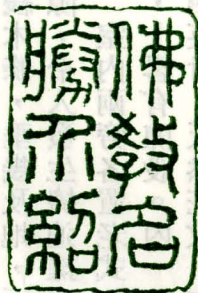 佛教名
勝介紹